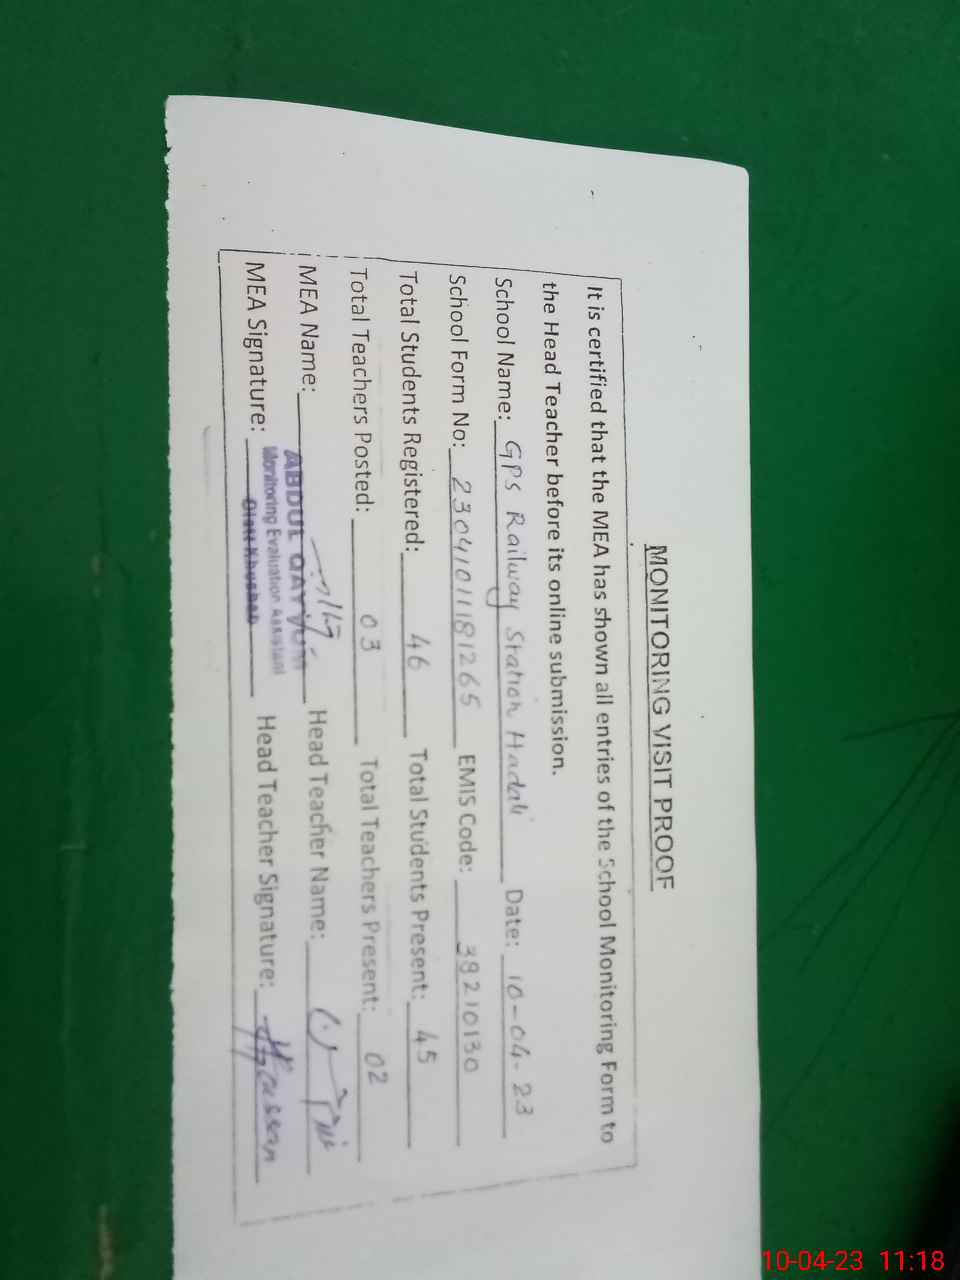 MONITORING VISIT PROOF
It is certified that the MEA has shown all entries of the School Monitoring Form to
the Head Teacher before its online submission.
School Name: GPS Railway Station Hadali Date: 10-04-23
School Form No: 2304101181265 EMIS Code: 38210130
Total Students Registered: 46 Total Students Present: 45
Total Teachers Posted: 03 Total Teachers Present: 02
MEA Name: ABDUL QAYYUM Head Teacher Name:
Monitoring Evaluation Assistant
MEA Signature: Distt Khushab Head Teacher Signature: Hassan
10-04-23 11:18